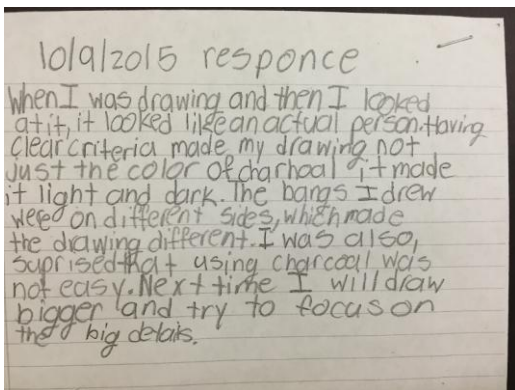 10/9/2015 responce
When I was drawing and then I looked
at it, it looked like an actual person. Having
clear criteria made my drawing not
just the color of charhoal it made
it light and dark. The bangs I drew
were on different sides, which made
the drawing different. I was also,
suprised that using charcoal was
not easy. Next time I will draw
bigger and try to focus on
the big detais.